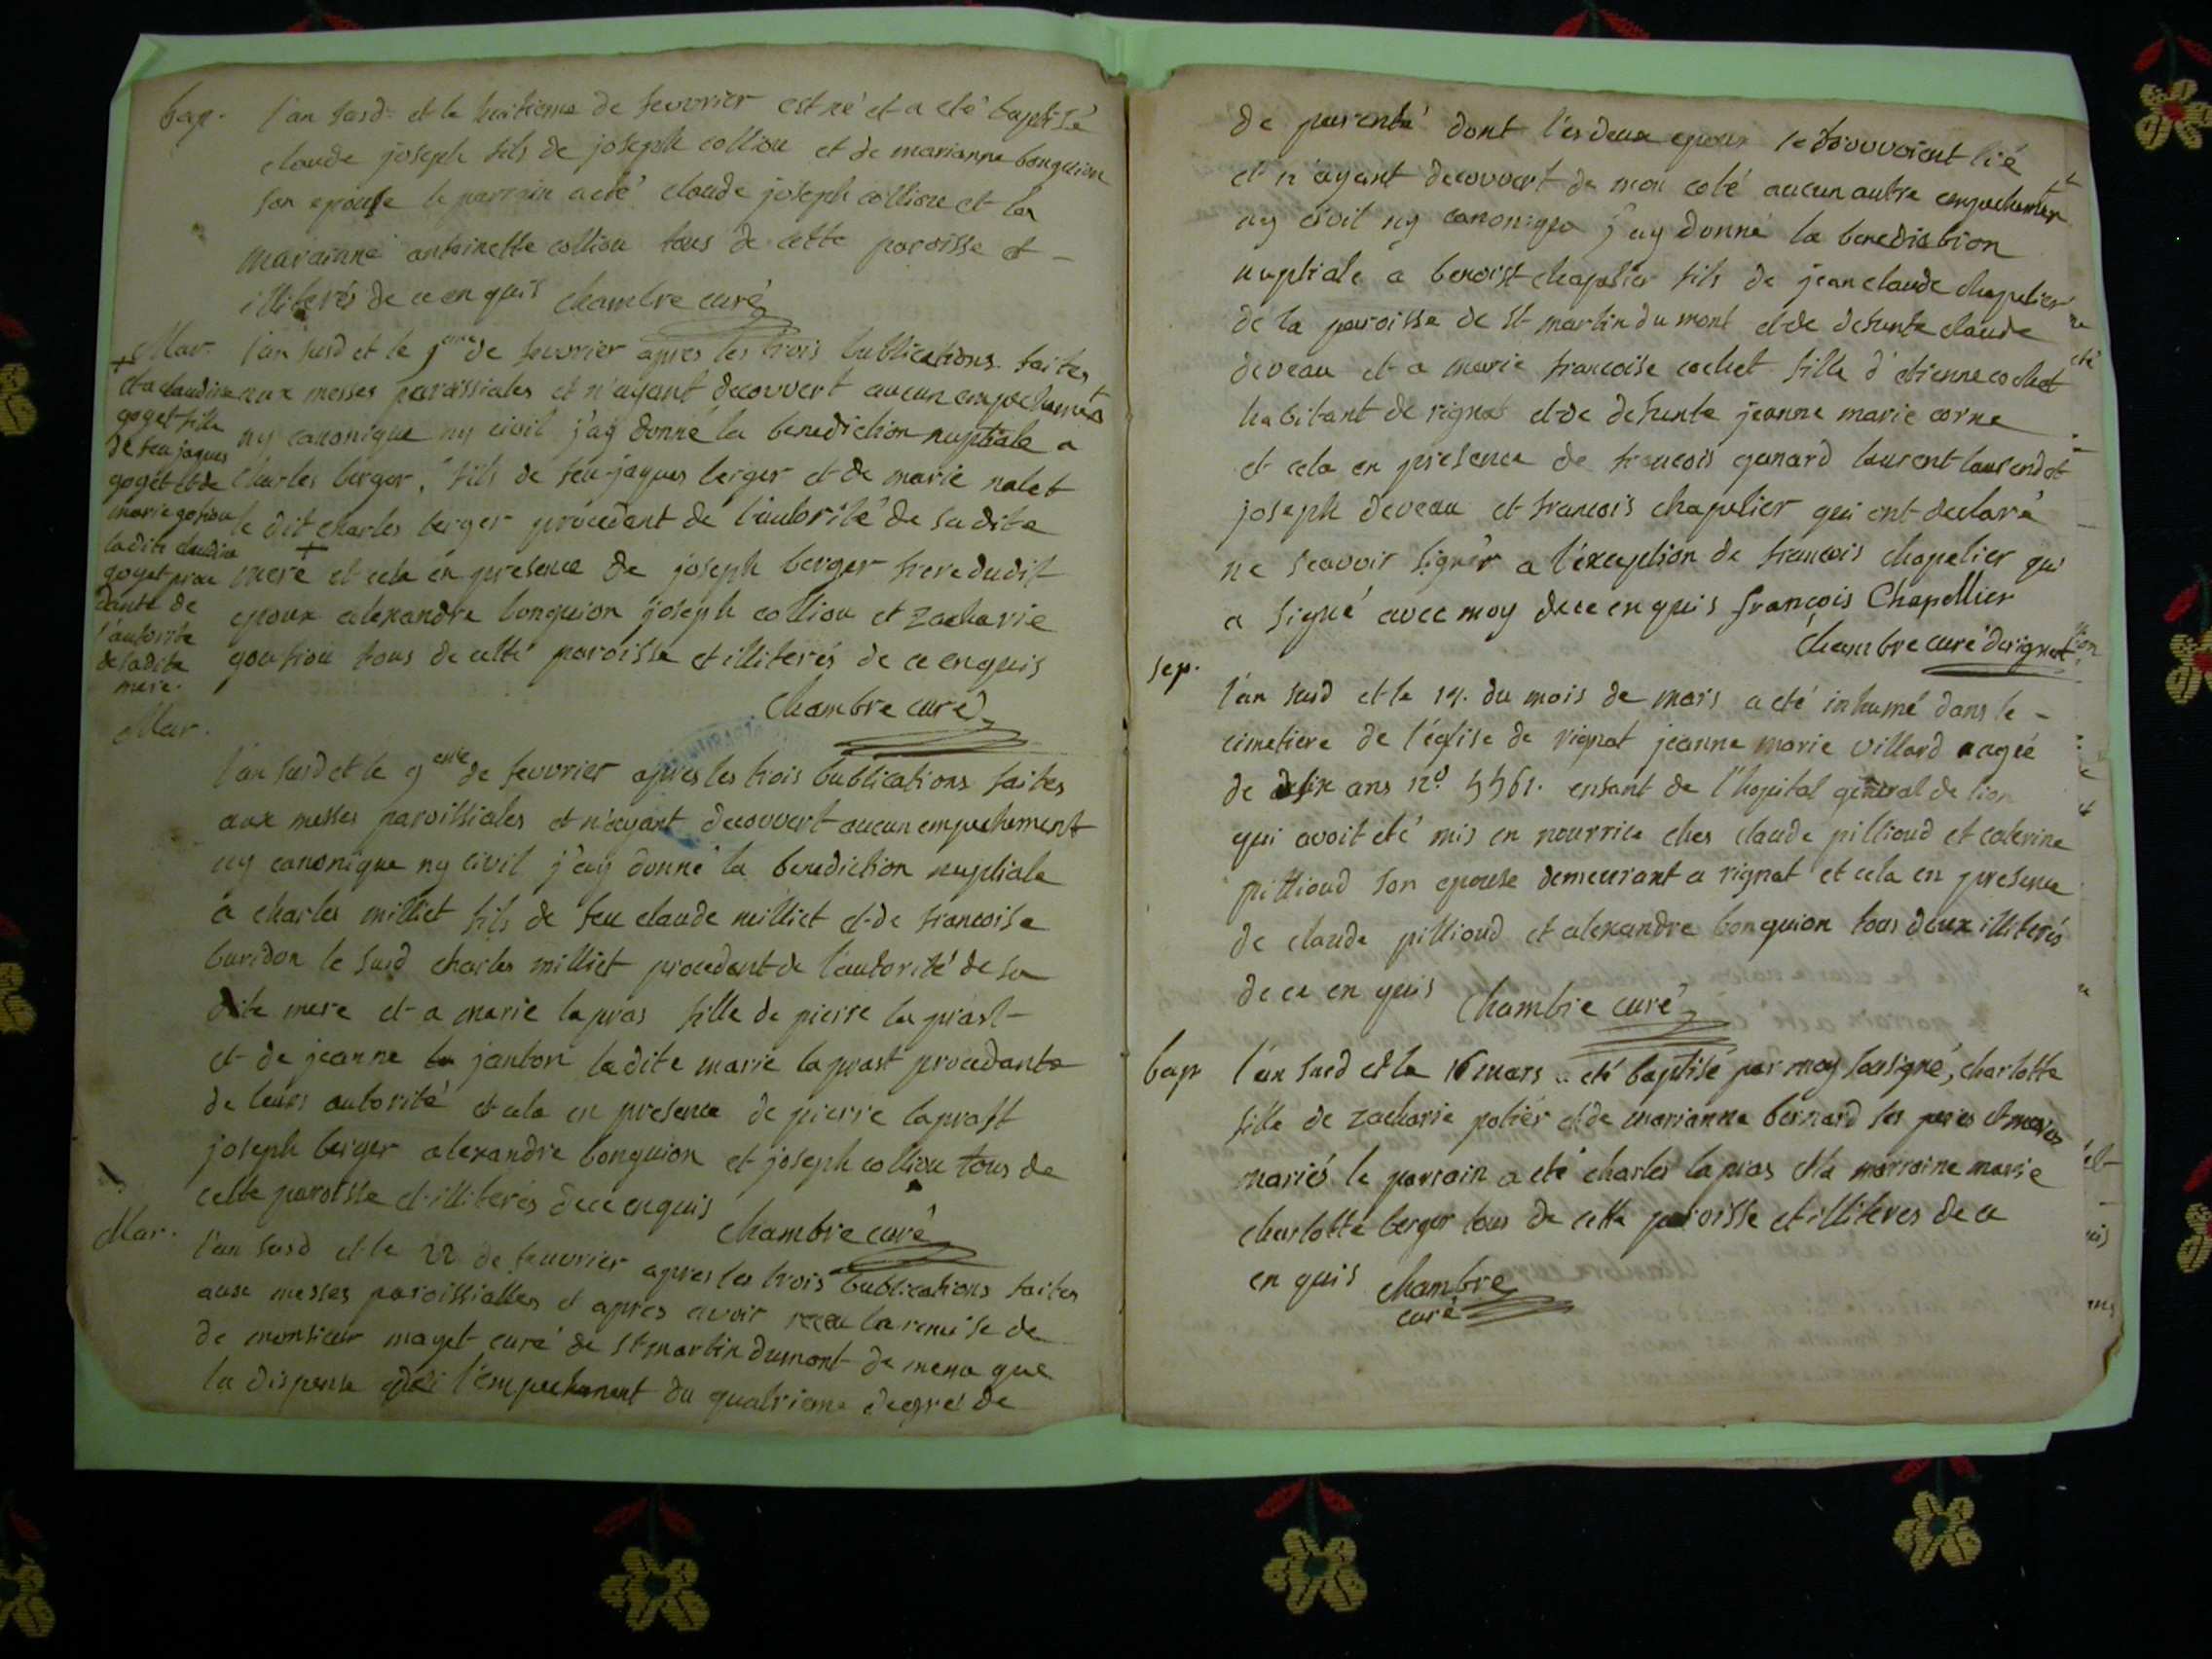 bap. l'an susd et le huitieme de feuvrier est né et a eté baptisé
claude joseph fils de joseph colliou et de marianne bonguion
son epouse le parrain a eté claude joseph colliou et la
maraine antoinette colliou tous de cette paroisse et
illiterés de ce enquis chambre curé
Mar. l'an susd et le 9eme de feuvrier apres les trois bublications faites
aux messes paroissiales et n'ayant decouvert aucun empechement
ny canonique ny civil j'ay donné la benediction nuptiale a
charles berger, fils de feu jaques berger et de marie nalet
le dit charles berger procedent de l'autorité de sa dite
+
mere et cela en presence de joseph berger frere dudit
epoux alexandre bonguion joseph colliou et zacharie
goution tous de cette paroisse et illiterés de ce enquis
chambre curé
+
et a claudine
goyet fille
de feu jaques
goyet et de
marie gotiou
la dite claudine
goyet proce
dante de
l'autorite
de la dite
mere.
Mar.
l'an susd et le 9eme de feuvrier apres les trois bublications faites
aux messes paroissiales et n'ayant decouvert aucun empechement
ny canonique ny civil j'ay donné la benediction nuptiale
a charles milliet fils de feu claude milliet et de francoise
buridon le susd charles milliet procedent de l'autorité de sa
dite mere et a marie lapras fille de pierre la prast
et de jeanne janton ladite marie laprast procedante
de leurs autorité et cela en presence de pierre laprast
joseph berger alexandre bonguion et joseph colliou tous de
cette paroisse et illiterés de ce enquis
chambre curé
Mar. l'an susd et le 22 de feuvrier apres les trois bublications faites
aux messes paroissialles et apres avoir receu la remise de
de monsieur mayet curé de st martin dumont de meme que
la dispense de l'empechement du quatrieme degré de
de parenté dont les deux epoux se trouvvoient lié
et n'ayant decouvert de mon coté aucun autre empechement
ny civil ny canonique j'ay donné la benediction
nuptiale a benoist chapelier fils de jean claude chapelier
de la paroisse de st martin du mont et de defunte claude
deveau et a marie francoise cochet fille d'etienne cochet
habitant de rignat et de defunte jeanne marie corne
et cela en presence de francois gunard laurent laurendet
joseph deveau et francois chapelier qui ont declaré
ne scavoir signer a l'exception de francois chapelier qui
a signé avec moy de ce enquis françois Chapellier
chambre curé de rignat
sep.
l'an susd et le 14. du mois de mars a eté inhumé dans le
cimetiere de l'église de rignat jeanne marie villard aagée
de ans no. 5561. enfant de l'hopital general de lion
qui avoit été mis en nourrice ches claude pillioud et caterine
pillioud son epouse demeurant a rignat et cela en presence
de claude pillioud et alexandre bonguion tous deux illiterés
de ce en quis chambre curé
bap l'an susd et le 16 mars a eté baptisé par moy sousigné, charlotte
fille de zacharie potier et de marianne bernard ses peres et meres
mariés le parrain a eté charles lapras et la marraine marie
charlotte berger tous de cette paroisse et illiteres de ce
en quis chambre
curé